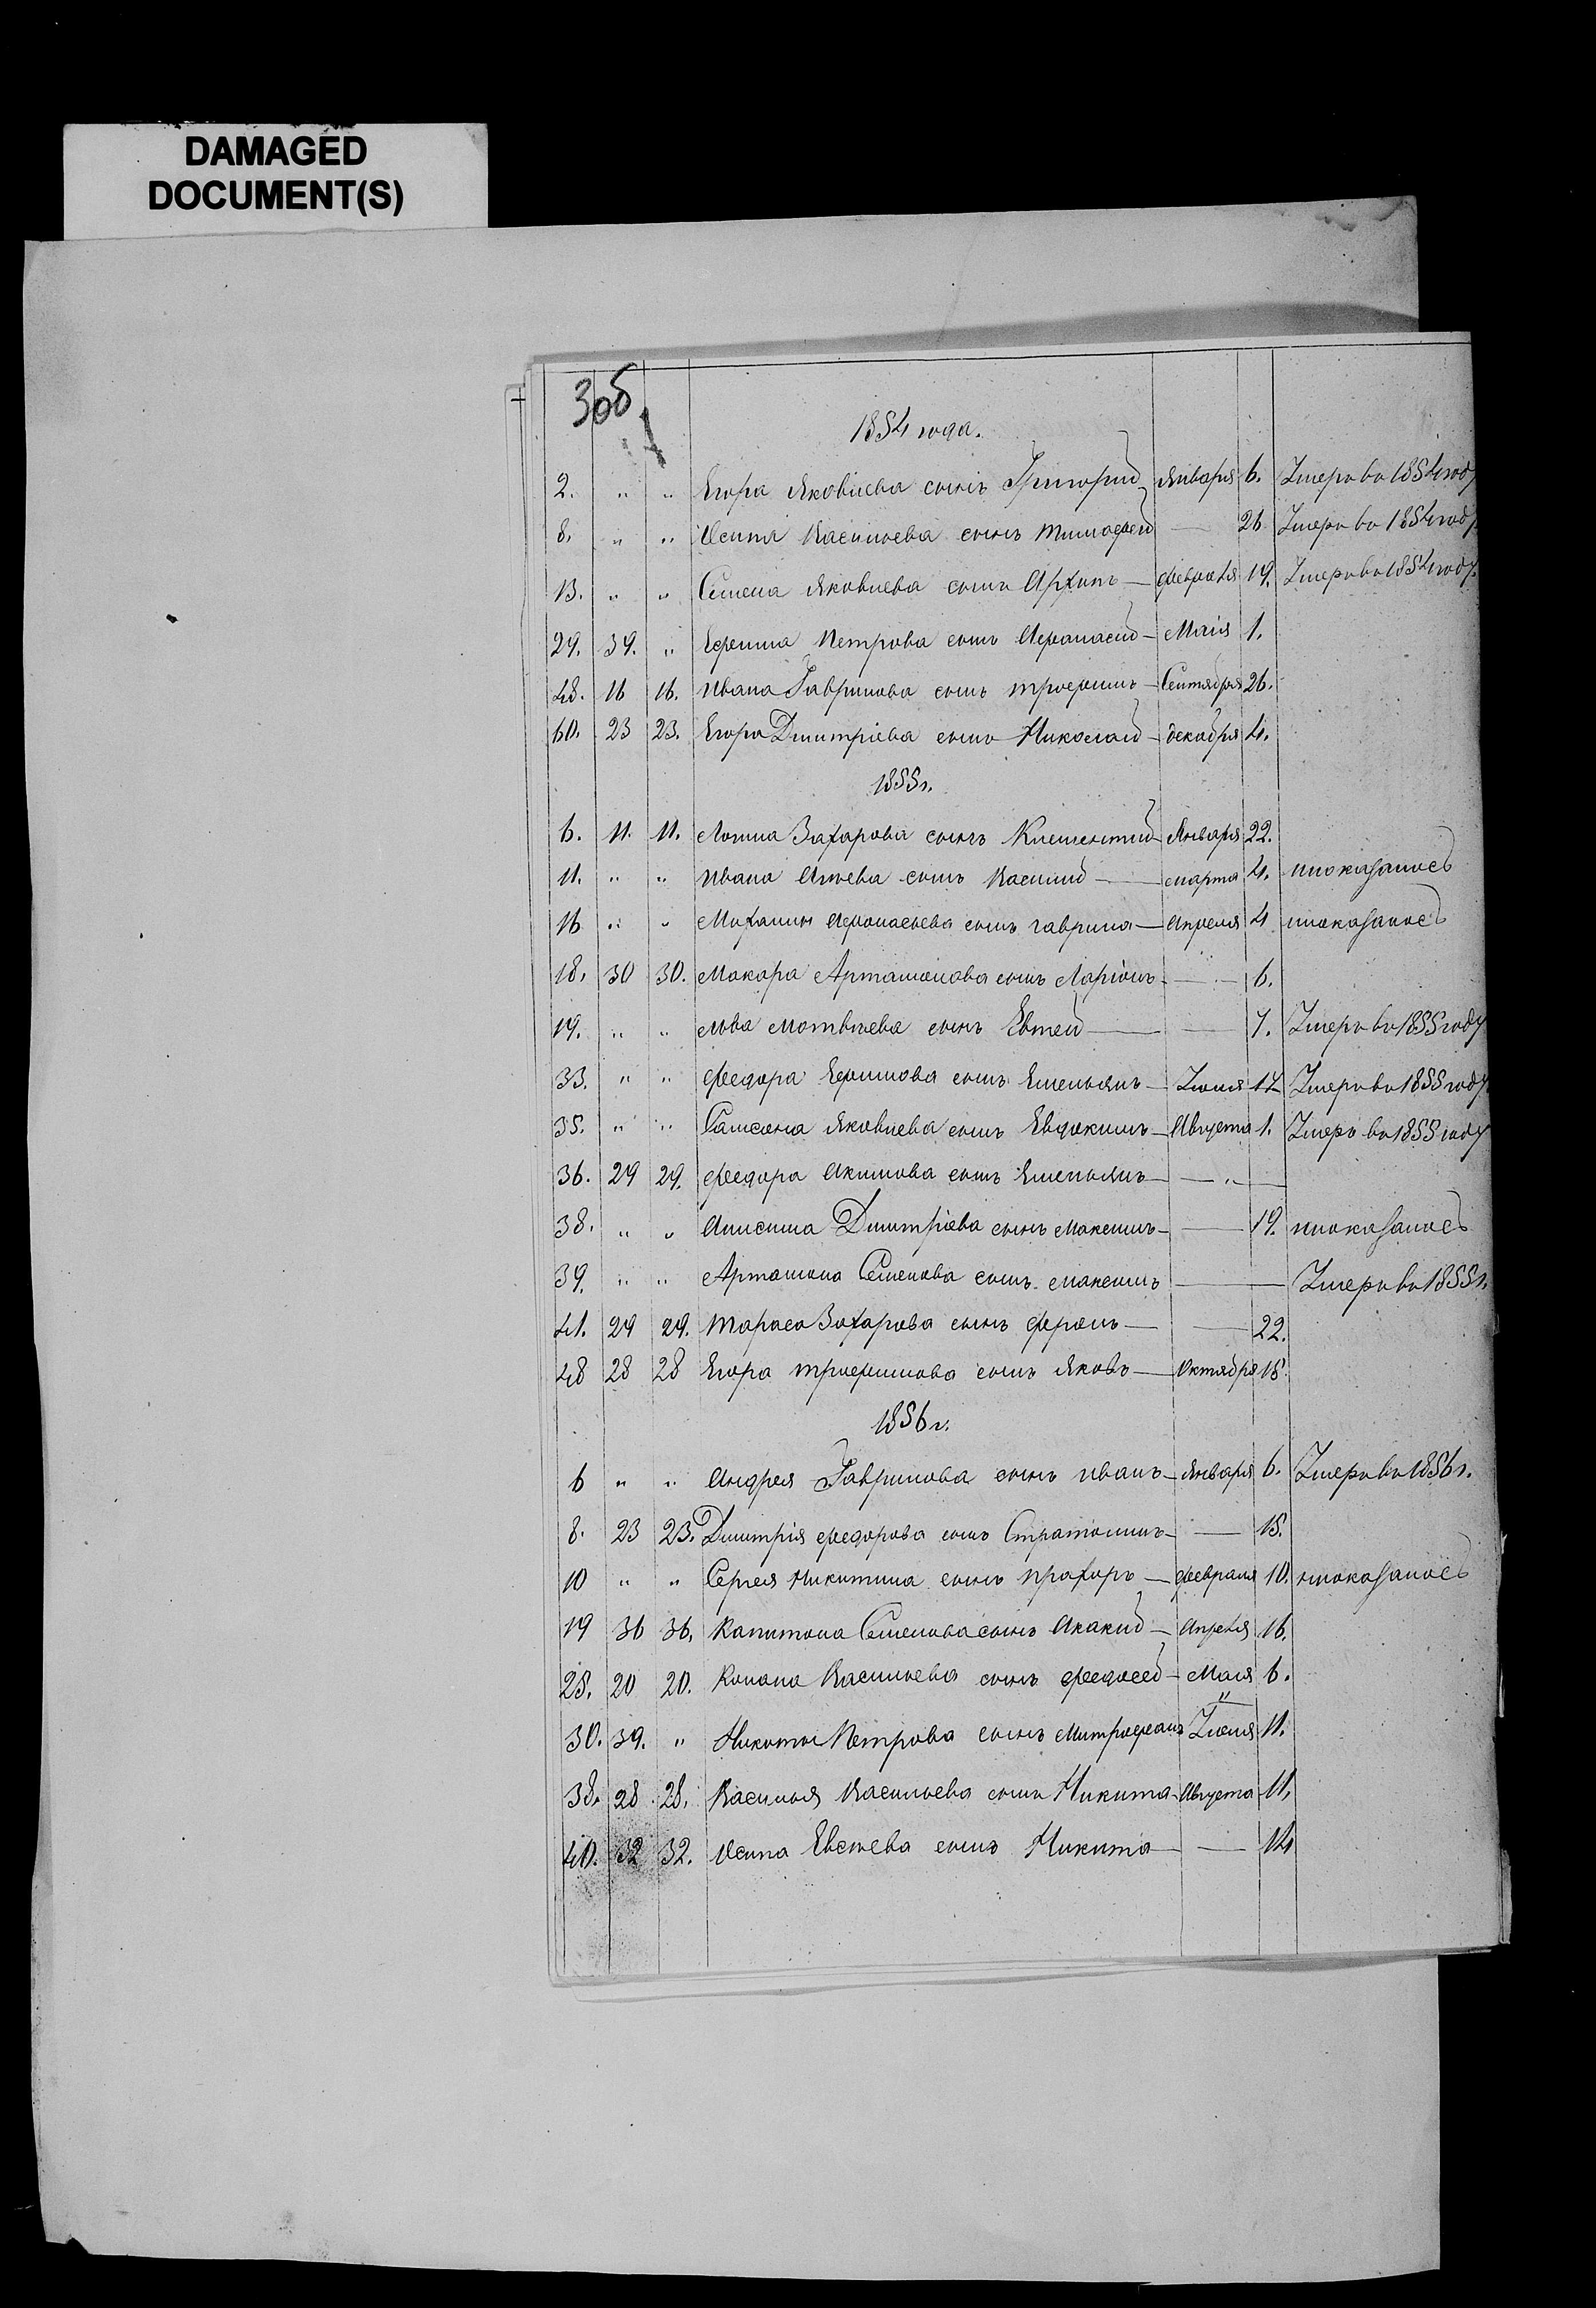 DAMAGED
DOCUMENT(S)
30б
1854 года.
2. " " Егора Яковлева сынъ Григорий Января 6. Умеръ во 1854 году
8. " " Осипа Васильева сынъ Тимофей — 26 Умеръ во 1854 году
13. " " Семена Яковлева сынъ Архипъ — февраля 19. Умеръ во 1854 году.
29. 39. " Ефрема Петрова сынъ Афанасий — Маия 1.
48. 16 16. Ивана Гаврилова сынъ Трофимъ — Сентября 26.
60. 23 23. Егора Дмитріева сынъ Николай — декабря 4.
1855 г.
6. 11. 11. Логина Захарова сынъ Климентий Января 22.
11. " " Ивана сынъ Василий — марта 4. непоказаносъ
16 " " Михаилы Афонасьева сынъ гаврила — Апреля 4 непоказаносъ
18. 30 30. Макара Артамонова сынъ Ларіонъ — 6.
19. " " Льва Матвѣева сынъ Евтей — 7. Умеръ во 1855 году
33. " " Федора Ефимова сынъ Емельянъ — Июля 17 Умеръ во 1855 году
35. " " Самсона Яковлева сынъ Евдокимъ — Августа 1. Умеръ во 1855 году
36. 29 29. Федора Акимова сынъ Емельянъ — " —
38. " " Анисима Дмитріева сынъ Максимъ — 19. непоказаносъ
39. " " Артамона Семенова сынъ максимъ — Умеръ во 1855 г.
41. 29 29. Тараса Захарова сынъ фролъ — 22.
48 28 28 Егора Трофимова сынъ Яковъ — Октября 18.
1856 г.
6 " " Андрея Гаврилова сынъ Иванъ — Января 6. Умеръ во 1856 г.
8. 23 23. Дмитрія федорова сынъ — 15.
10 " " Сергея Никитина сынъ Прохоръ — февраля 10. непоказаносъ
19 36 36. Капитона Семенова сынъ Акакий — Апреля 16.
28. 20 20. Конана Васильева сынъ Федосей — Маия 6.
30. 39. " Никиты Петрова сынъ Митрофанъ Июля 11.
38. 28 28. Василья Васильева сынъ Никита — Августа 11.
40. 32 32. Осипа Евсеева сынъ Никита — 14